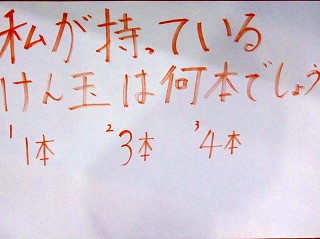 私が持っている
けん玉は何本でしょう
1 1本 2 3本 3 4本